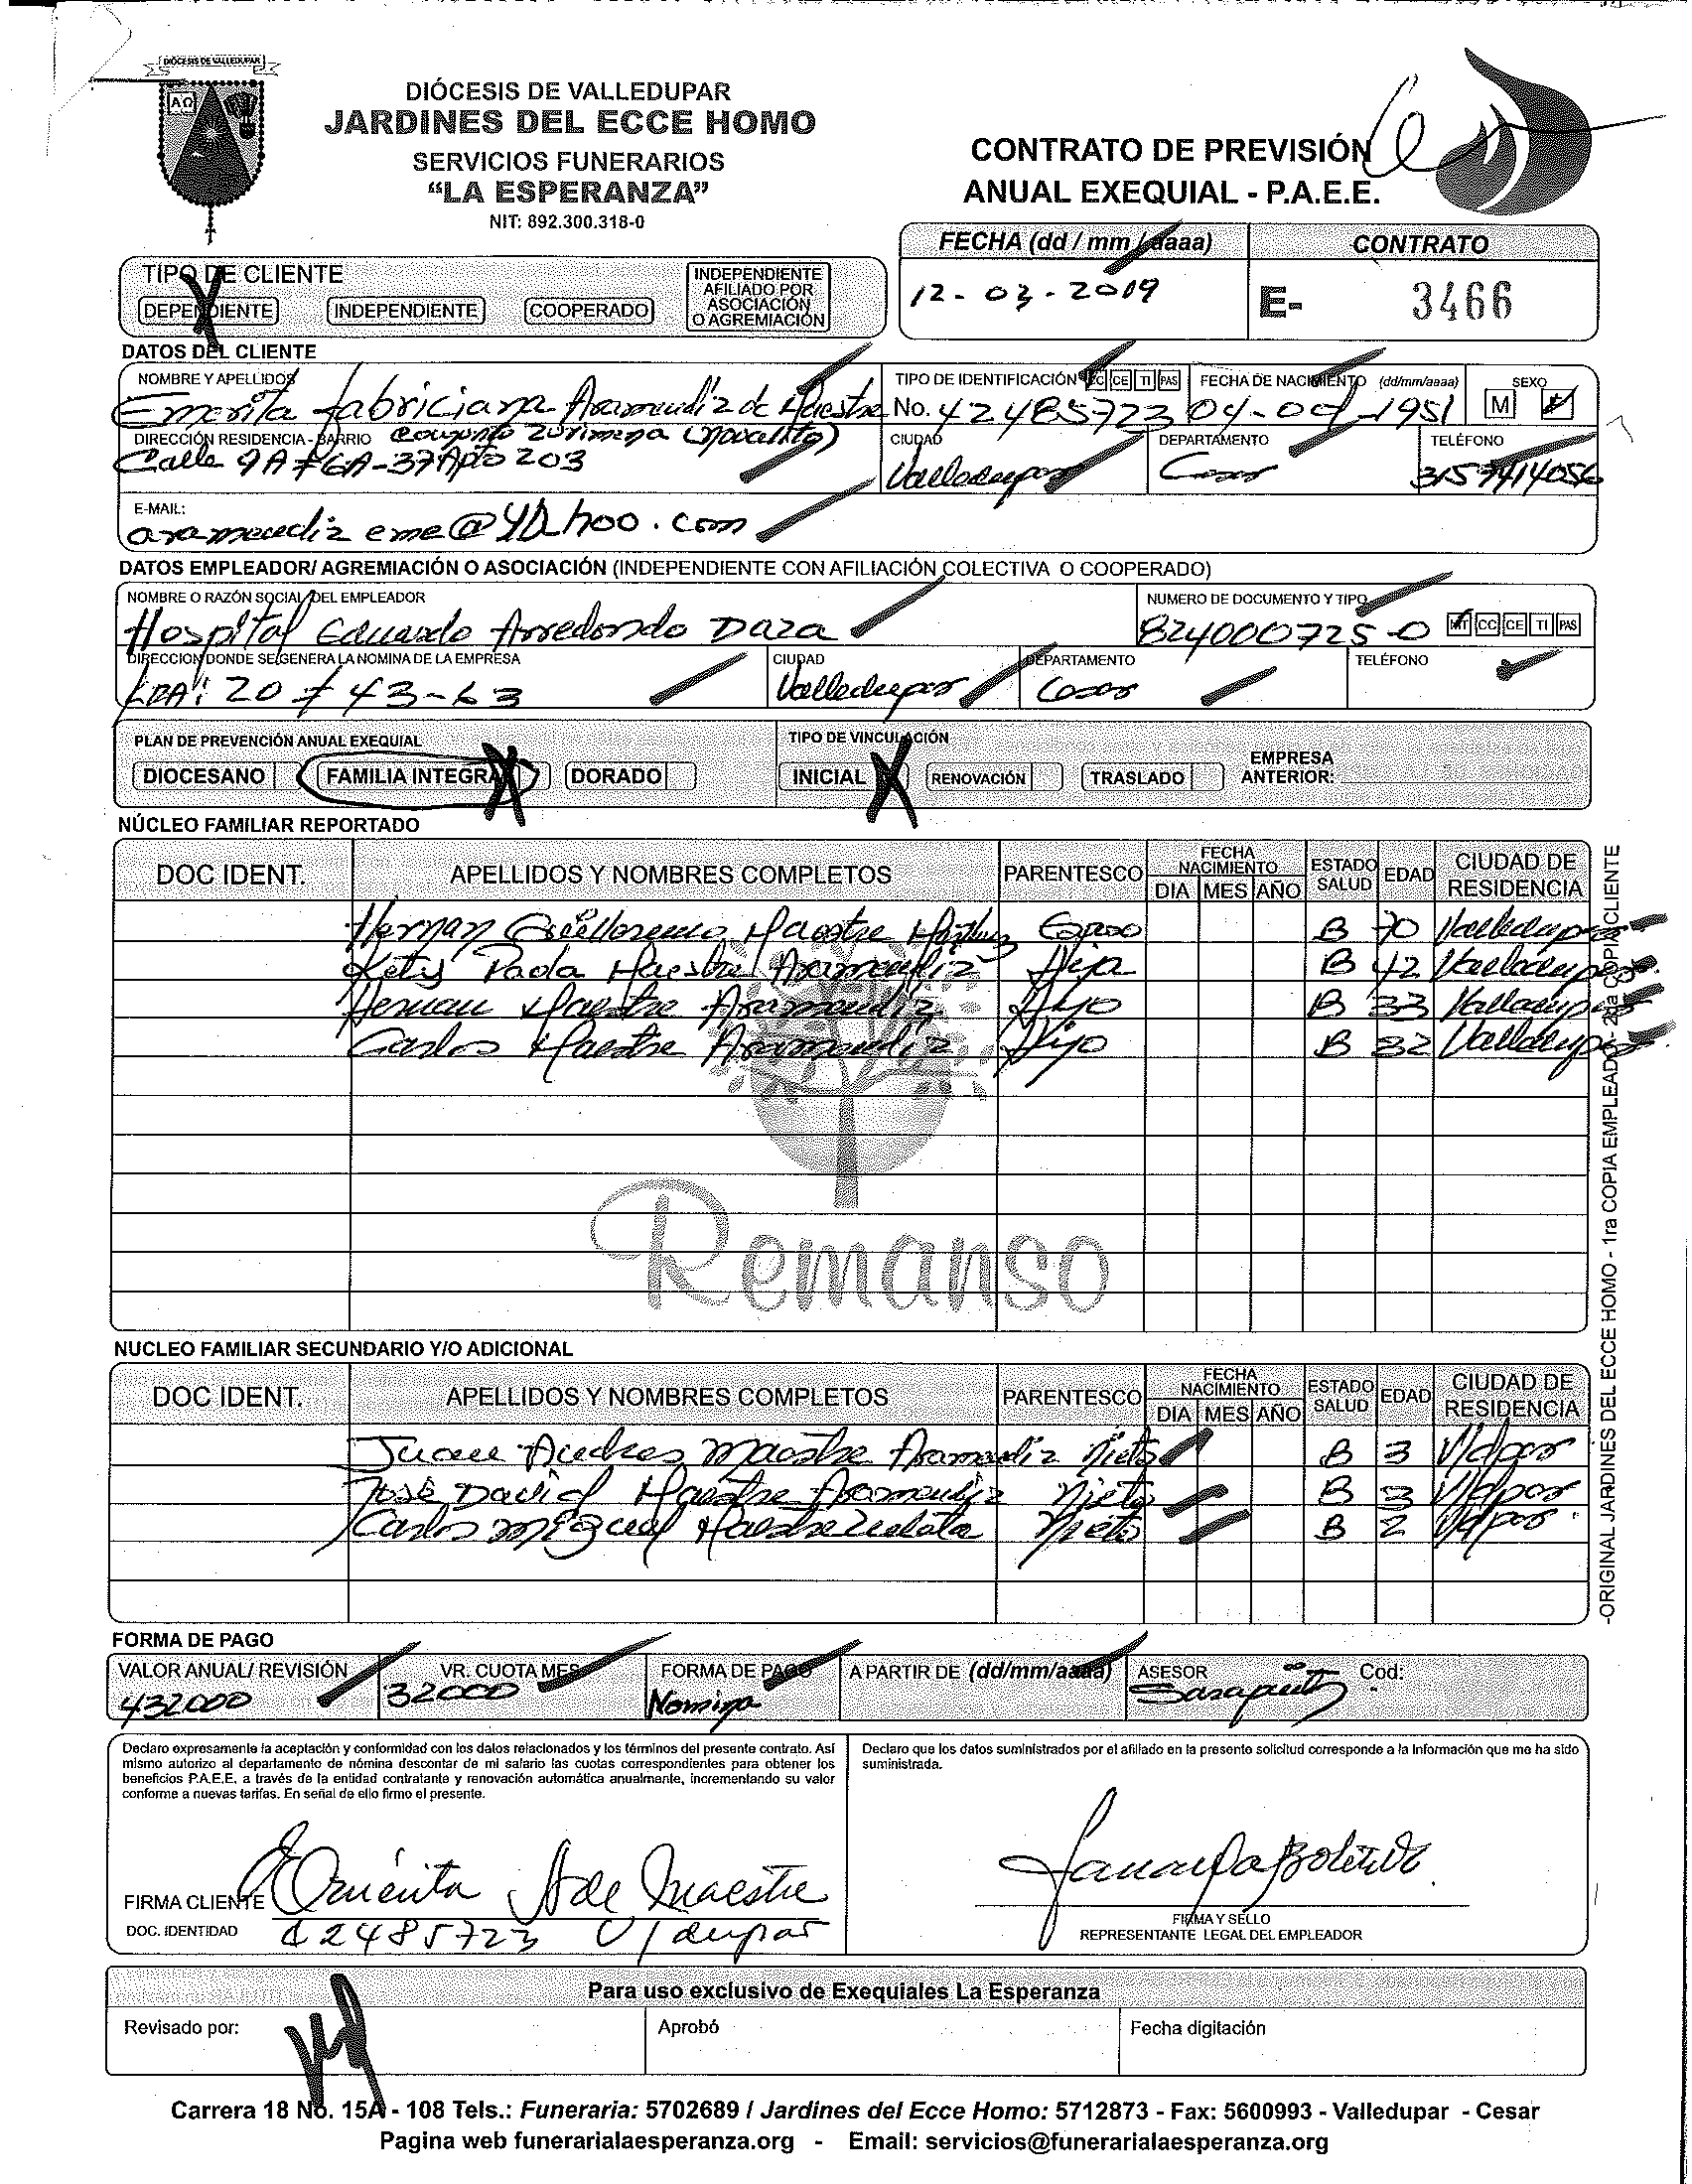 DIÓCESIS DE VALLEDUPAR
ΑΩ
DIÓCESIS DE VALLEDUPAR
JARDINES DEL ECCE HOMO
SERVICIOS FUNERARIOS
“LA ESPERANZA”
NIT: 892.300.318-0
CONTRATO DE PREVISIÓN
ANUAL EXEQUIAL - P.A.E.E.
FECHA (dd / mm / aaaa) CONTRATO
12-03-2019 E- 3466
TIPO DE CLIENTE
DEPENDIENTE INDEPENDIENTE COOPERADO INDEPENDIENTE AFILIADO POR ASOCIACIÓN O AGREMIACIÓN
DATOS DEL CLIENTE
NOMBRE Y APELLIDOS TIPO DE IDENTIFICACIÓN CC CE TI PAS FECHA DE NACIMIENTO (dd/mm/aaaa) SEXO
Emerita fabriciana Aramendiz de Maestre No. 42485723 04-04-1951 M F
DIRECCIÓN RESIDENCIA - BARRIO Conjunto Zurimena (Novalito) CIUDAD DEPARTAMENTO TELÉFONO
Calle 9A # 6A-37 Apto 203 Valledupar Cesar 3157414056
E-MAIL:
aramendiz eme@Yahoo.com
DATOS EMPLEADOR/ AGREMIACIÓN O ASOCIACIÓN (INDEPENDIENTE CON AFILIACIÓN COLECTIVA O COOPERADO)
NOMBRE O RAZÓN SOCIAL DEL EMPLEADOR NUMERO DE DOCUMENTO Y TIPO
Hospital Eduardo Arredondo Daza 824000725-0 NIT CC CE TI PAS
DIRECCION DONDE SE GENERA LA NOMINA DE LA EMPRESA CIUDAD DEPARTAMENTO TELÉFONO
KRA: 20 # 43-63 Valledupar Cesar
PLAN DE PREVENCIÓN ANUAL EXEQUIAL TIPO DE VINCULACIÓN
DIOCESANO FAMILIA INTEGRAL DORADO INICIAL RENOVACIÓN TRASLADO EMPRESA ANTERIOR:
NÚCLEO FAMILIAR REPORTADO
DOC IDENT. APELLIDOS Y NOMBRES COMPLETOS PARENTESCO FECHA NACIMIENTO DIA MES AÑO ESTADO SALUD EDAD CIUDAD DE RESIDENCIA
Hernan Guillermo Maestre Esposo B 70 Valledupar
Ketty Paola Maestre Aramendiz Hija B 42 Valledupar
Hernan Maestre Aramendiz Hijo B 33 Valledupar
Carlos Maestre Aramendiz Hijo B 32 Valledupar
Remanso
NUCLEO FAMILIAR SECUNDARIO Y/O ADICIONAL
DOC IDENT. APELLIDOS Y NOMBRES COMPLETOS PARENTESCO FECHA NACIMIENTO DIA MES AÑO ESTADO SALUD EDAD CIUDAD DE RESIDENCIA
Juan Andres Maestre Aramendiz Nieto B 3 V/dpar
José David Maestre Aramendiz Nieto B 3 V/dpar
Carlos Miguel Maestre Zuleta Nieto B 2 V/dpar
FORMA DE PAGO
VALOR ANUAL/ REVISIÓN VR. CUOTA MES FORMA DE PAGO A PARTIR DE (dd/mm/aaaa) ASESOR Cod:
432000 32000 Nomina
Declaro expresamente la aceptación y conformidad con los datos relacionados y los términos del presente contrato. Así
mismo autorizo al departamento de nómina descontar de mi salario las cuotas correspondientes para obtener los
beneficios P.A.E.E. a través de la entidad contratante y renovación automática anualmente, incrementando su valor
conforme a nuevas tarifas. En señal de ello firmo el presente.
Declaro que los datos suministrados por el afiliado en la presente solicitud corresponde a la información que me ha sido
suministrada.
FIRMA CLIENTE Emerita A de Maestre
DOC. IDENTIDAD 42485723 V/dupar
FIRMA Y SELLO
REPRESENTANTE LEGAL DEL EMPLEADOR
Para uso exclusivo de Exequiales La Esperanza
Revisado por: Aprobó Fecha digitación
Carrera 18 No. 15A - 108 Tels.: Funeraria: 5702689 / Jardines del Ecce Homo: 5712873 - Fax: 5600993 - Valledupar - Cesar
Pagina web funerarialaesperanza.org - Email: servicios@funerarialaesperanza.org
-ORIGINAL JARDINES DEL ECCE HOMO - 1ra COPIA EMPLEADOR 2da COPIA CLIENTE